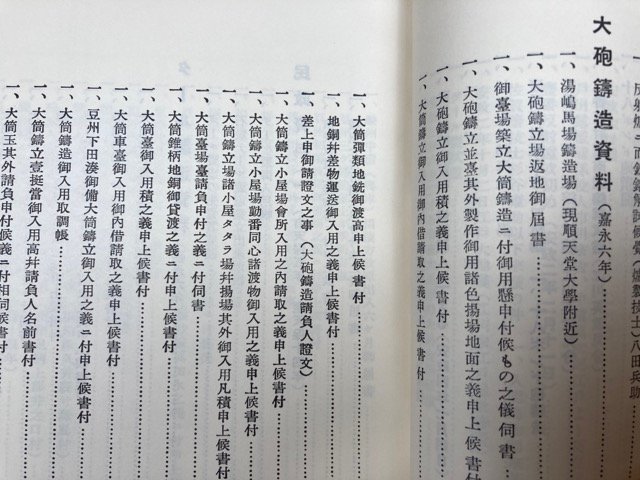 大砲鑄造資料（嘉永六年）
一、湯嶋馬場鑄造場（現順天堂大學附近）
一、大砲鑄立場返地御屆書
一、御臺場築立大筒鑄造ニ付御用懸申付候もの之儀伺書
一、大砲鑄立並臺其外製作御用諸色揚場地面之義申上候書付
一、大砲鑄立御入用積之義申上候書付
一、大筒鑄立御入用御內借請取之義申上候書付
一、大筒彈類地銑御渡高申上候書付
一、地銅幷差物運送御入用之義申上候書付
一、差上申御請證文之事（大砲鑄造請負人證文）
一、大筒鑄立小屋場會所入用之內請取之義申上候書付
一、大筒鑄立小屋場勤番同心諸渡物御入用之義申上候書付
一、大筒鑄立場諸小屋タタラ場幷揚場其外御入用凡積申上候書付
一、大筒臺場臺請負申付之義ニ付伺書
一、大筒錐柄地銅御貸渡之義ニ付申上候書付
一、大筒臺御入用積之義申上候書付
一、大筒車臺御入用御內借請取之義申上候書付
一、豆州下田湊御備大筒鑄立御入用之義ニ付申上候書付
一、大筒鑄造御入用取調帳
一、大筒鑄立壹挺當御入用高幷請負人名前書付
一、大筒玉其外請負申付候義ニ付相伺候書付